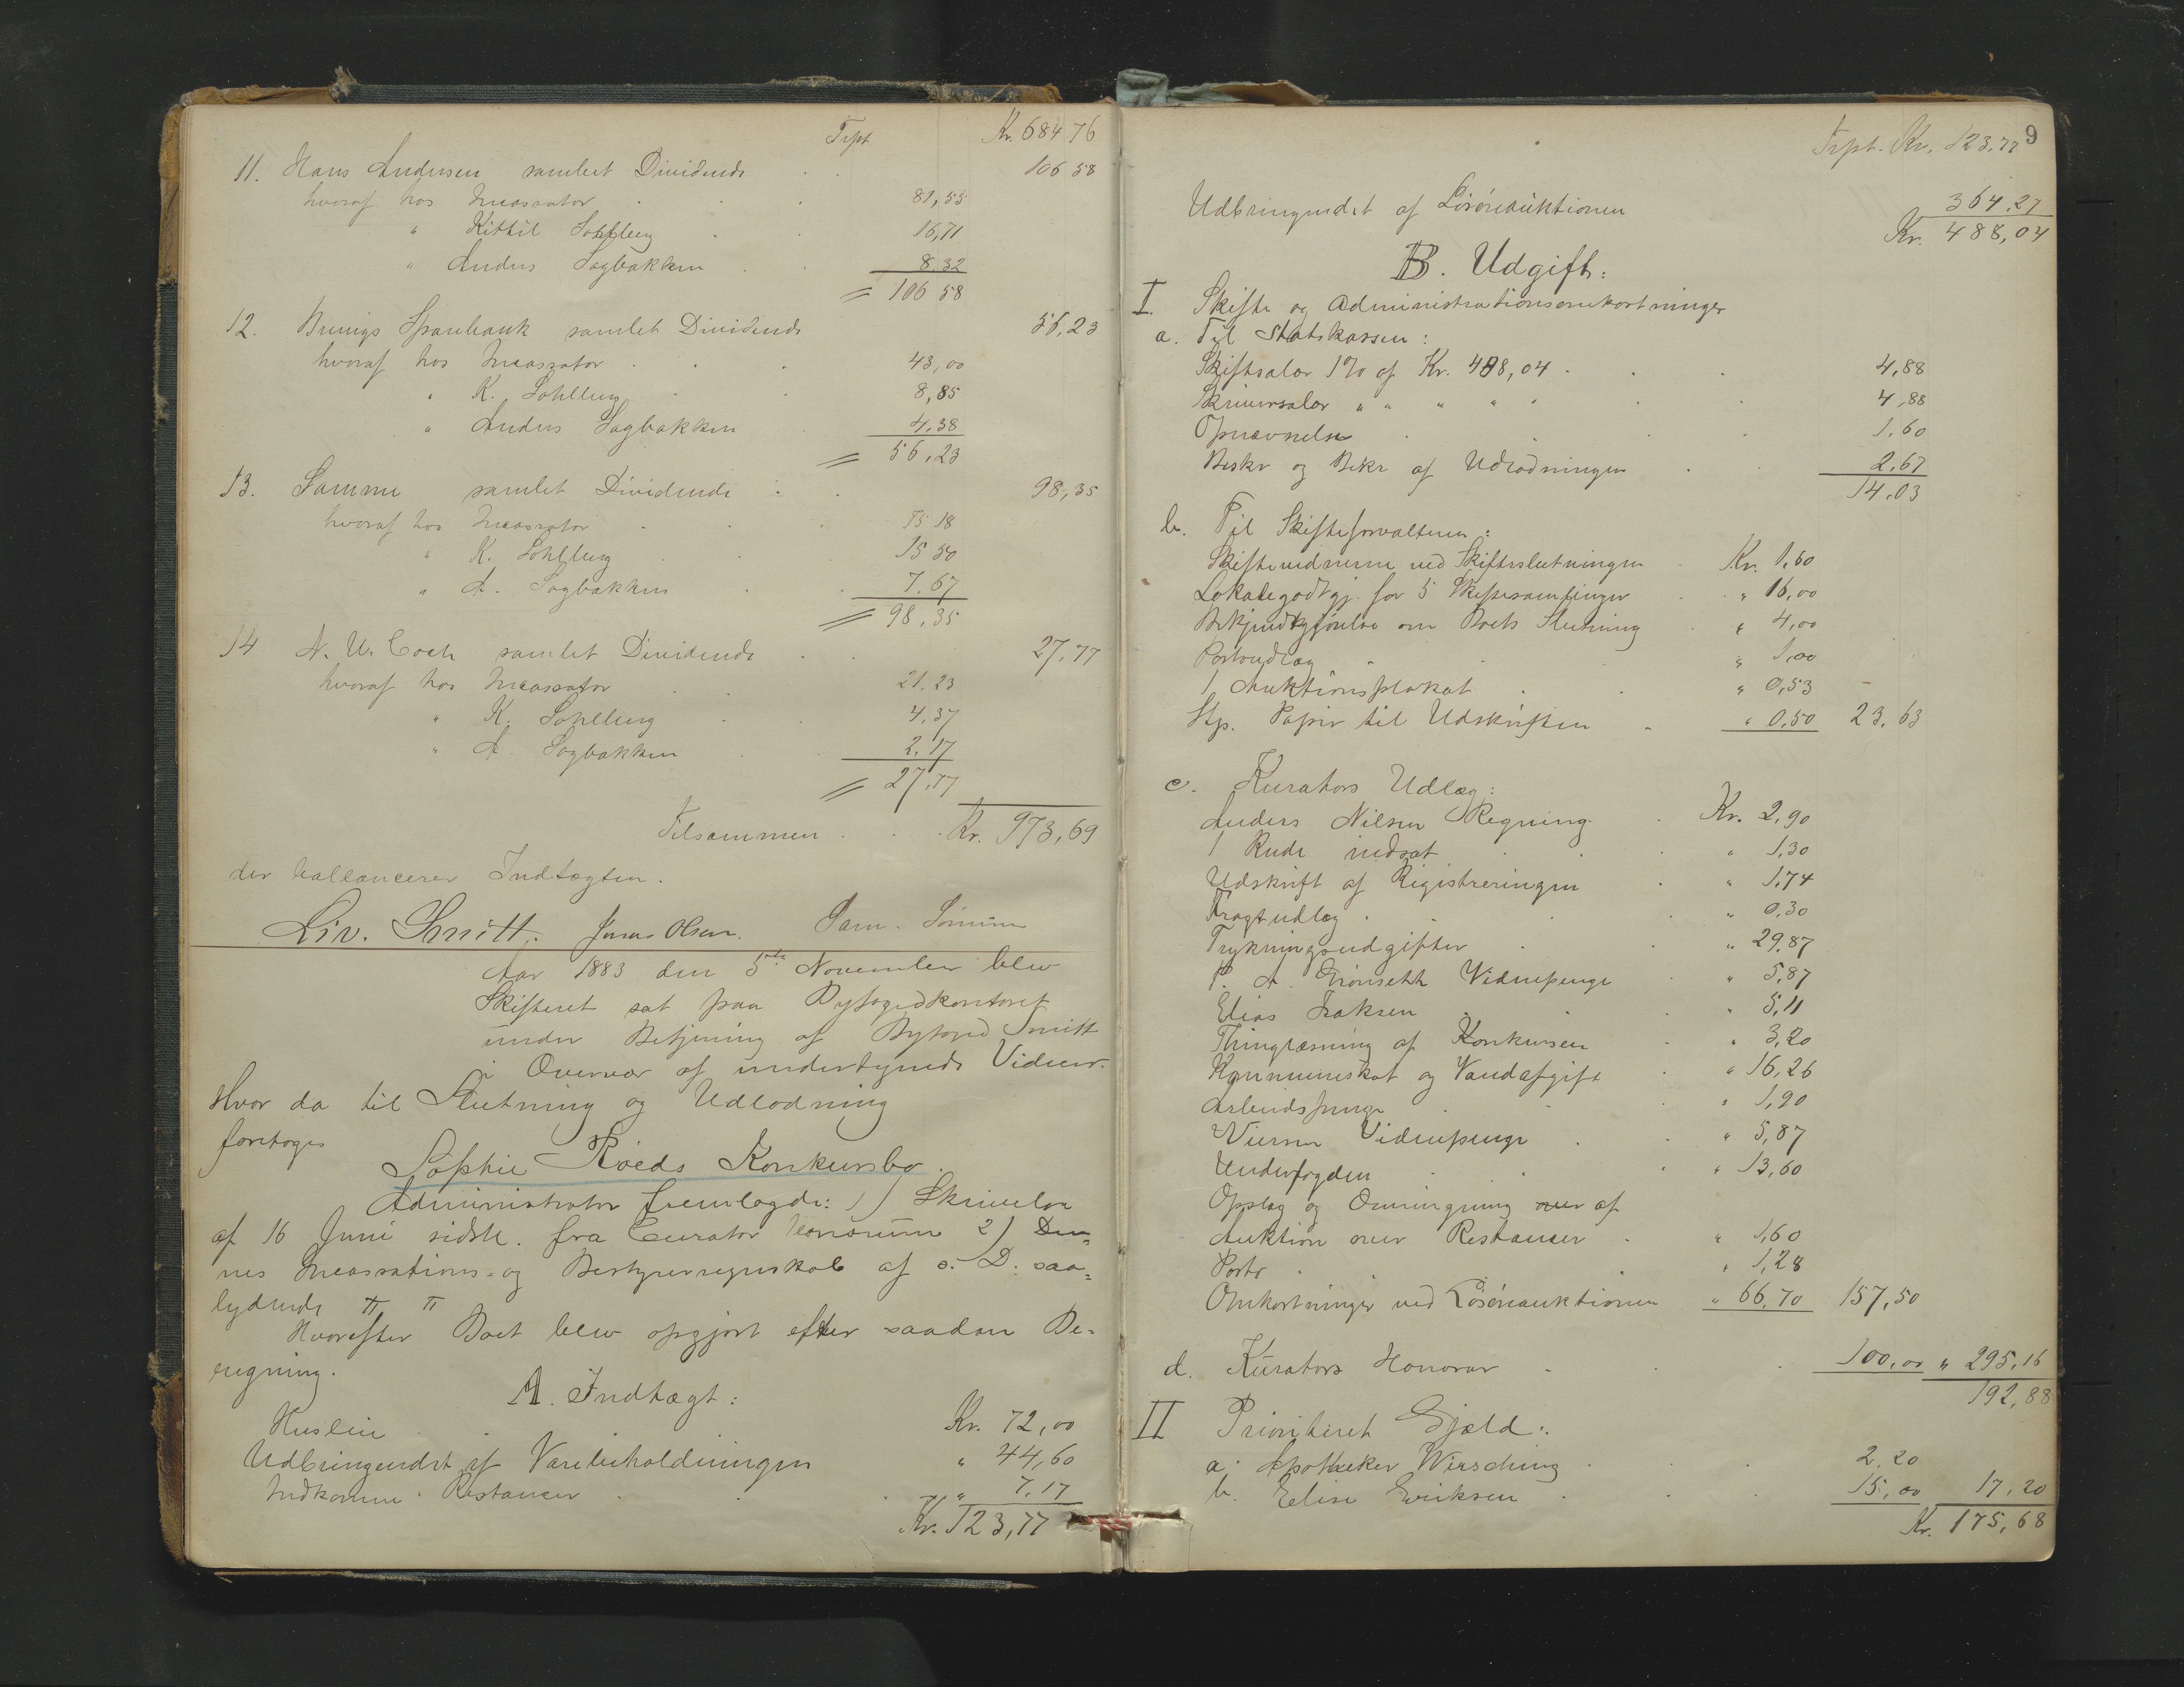 Trpt Kr. 684 76
11. Hans Andersen samlet Dividende . . 106 58
hvoraf hos Incassator . . . 81,55
" Kittil Sohlberg . . 16,71
" Anders Sagbakken . . 8.32
= 106 58
12. Brevigs Sparebank samlet Dividende 56,23
hvoraf hos Incassator . . . 43,00
" K. Sohlberg . . 8,85
" Anders Sagbakken . 4.38
= 56,23
13. Samme samlet Dividende . . 98,35
hvoraf hos Incassator . . . 75 18
" K. Sohlberg . . 15 50
" A. Sagbakken . . 7.67
= 98,35
14 N. U. Coch samlet Dividende . . 27,77
hvoraf hos Incassator . . 21.23
" K. Sohlberg . . 4,37
" A. Sagbakken . 2.17
= 27,77
Tilsammen . . . Kr. 973,69
der ballancerer Indtægten.
Liv. Smitt. Jonas Olsen. Sam.
Aar 1883 den 5te November blev
Skifteret sat paa Byfogedkontoret
under Betjening af Byfoged Smitt
i Overvær af undertegnede Vidner.
Hvor da til Slutning og Udlodning
foretoges
Sophie Röeds Konkursbo.
Administrator fremlagde: 1) Skrivelse
af 16 Juni sidstl. fra Curator bonorum 2) Den=
nes Incassations= og Bestyrerregnskab af s. D. saa=
lydende π π
Hvorefter Boet blev opgjort efter saadan Be=
regning.
A. Indtægt:
Husleie . . Kr. 72,00
Udbringendet af Varebeholdningen " 44,60
Indkomne Restancer . . . " 7.17
Kr. 123,77
Trpt. Kr. 123.77 9
Udbringendet af Lösöreauktionen 364.27
Kr. 488,04
B. Udgift:
I. Skifte og Administrationsomkostninger
a. Til Statskassen:
Skiftesalær 1% af Kr. 488,04 . . . 4,88
Skriversalær " " " " " . . 4,88
Opnævnelse . . . 1.60
Beskr og Bekr af Udlodningen . . 2,67
14.03
b. Til Skifteforvalteren:
Skiftevidnerne ved Skifteslutningen . Kr. 1,60
Lokalegodtgj. for 5 Skiftesamlinger . . " 16,00
Bekjendtgjörelse om Boets Slutning . " 4,00
Portoudlæg . . " 1,00
1 Auktionsplakat . . " 0,53
Stp. Papir til Udskriften . " 0,50 23.63
c. Kurators Udlæg:
Anders Nilsen Regning . Kr. 2,90
1 Rude indsat . . . " 1,30
Udskrift af Registreringen . " 1,74
Fragtudlæg . . . . " 0,30
Trykningsudgifter . . " 29,87
P. A. Grönseth Vidnepenge " 5,87
Elias Isaksen . . . " 5,11
Thinglæsning af Konkursen . " 3,20
Kommuneskat og Vandafgift . " 16,26
Arbeidspenge . . . " 1,90
Vidnepenge . . " 5,87
Underfogden . . . " 13,60
Opslag og Omringning over af
Auktion over Restancer . " 1,60
Porto . . . " 1,28
Omkostninger ved Lösöreauktionen " 66,70 157,50
d. Kurators Honorar . . . 100,00 " 295,16
192,88
II Prioriteret Gjæld:
a. Apotheker Wiersching . . . 2,20
b. Elise Eriksen . . . 15,00 17,20
Kr. 175,68